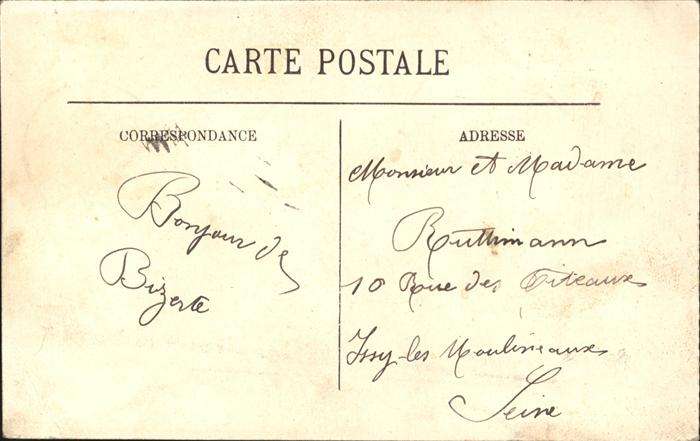 CARTE POSTALE
CORRESPONDANCE
Bonjour de
Bizerte
ADRESSE
Monsieur et Madame
Ruthmann
10 Rue des
Issy-les Moulineaux
Seine